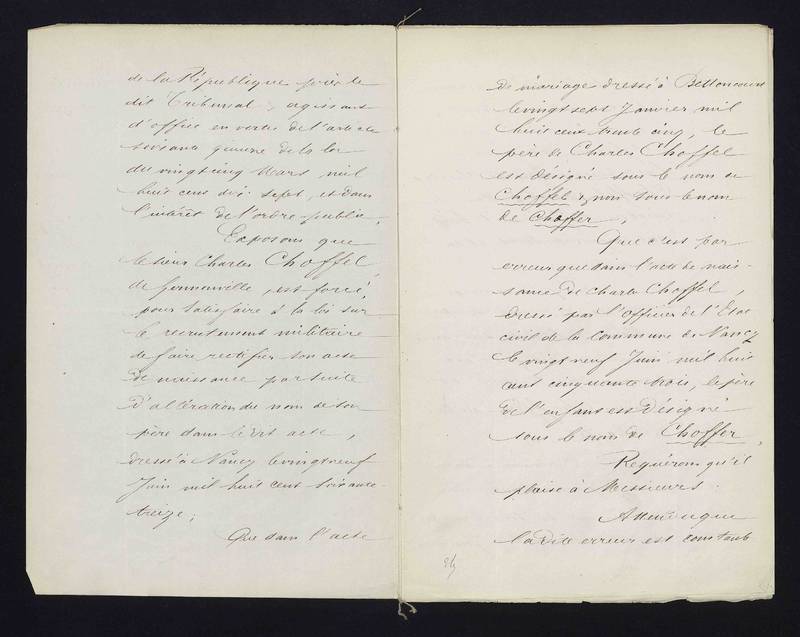 de la République près le
dit Tribunal, agissant
d'office en vertu de l'article
soixante quinze de la loi
du vingt cinq Mars mil
huit cent dix sept, et dans
l'intérêt de l'ordre public,
Exposons que
le sieur Charles Choffel,
de , est forcé,
pour satisfaire à la loi sur
le recrutement militaire
de faire rectifier son acte
de naissance par suite
d'altération du nom de son
père dans le dit acte,
dressé à Nancy le vingt neuf
Juin mil huit cent soixante
treize;
Que dans l'acte
de mariage dressé à Bettoncourt
le vingt sept Janvier mil
huit cent trente cinq, le
père de Charles Choffel
est désigné sous le nom de
Choffel & non sous le nom
de Choffer,
Que c'est par
erreur que dans l'acte de nais-
sance de Charles Choffel,
dressé par l'officier de l'Etat
civil de la commune de Nancy
le vingt neuf Juin mil huit
cent cinquante trois, le père
de l'enfant est désigné
sous le nom de Choffer,
Requérons qu'il
plaise à Messieurs.
Attendu que
la dite erreur est constante